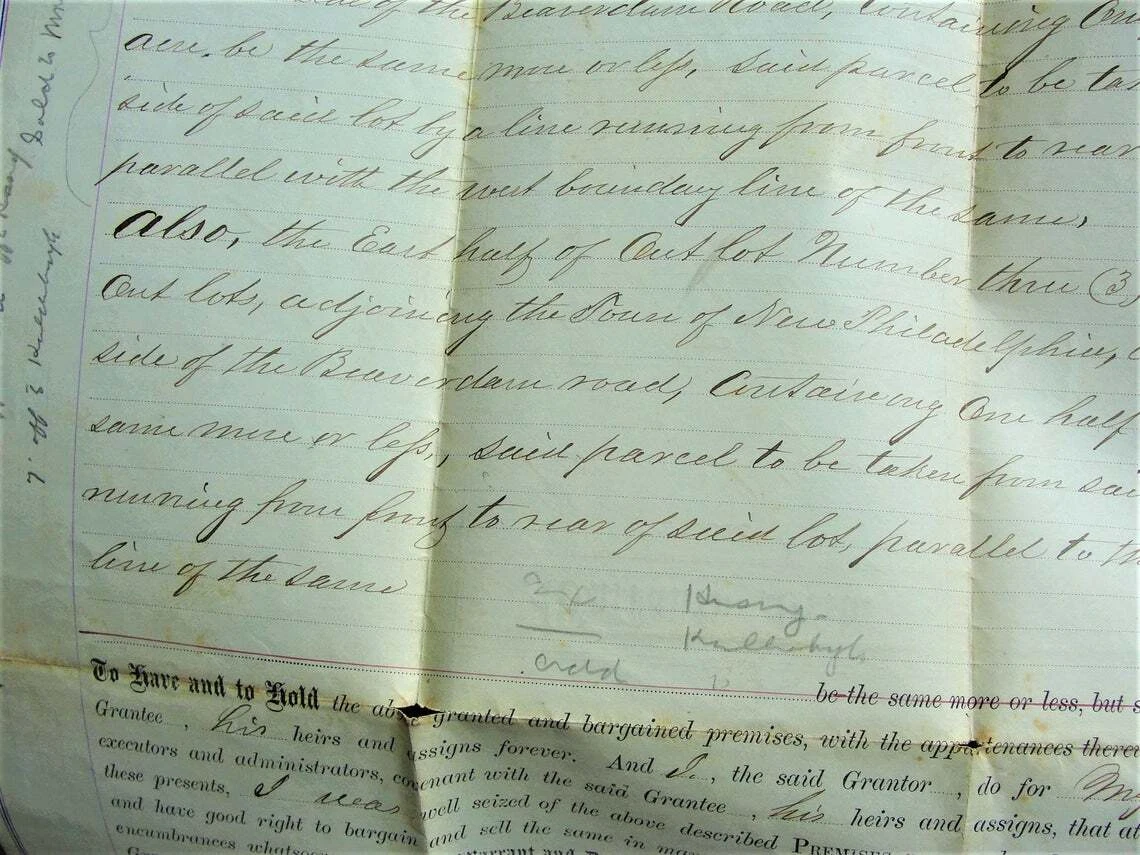 side of the Beaverdam Road, Containing One
acre, be the same more or less, said parcel to be tak
side of said lot by a line running from front to rear
parallel with the west boundary line of the same,
Also, the East half of Out lot Number three (3)
Out lots, adjoining the Town of New Philadelphia,
side of the Beaverdam road, Containing One half
same more or less, said parcel to be taken from sai
running from front to rear of said lot, parallel to th
line of the same
add
be the same more or less, but s
To Have and to Hold the above granted and bargained premises, with the appurtenances there
Grantee, his heirs and assigns forever. And I, the said Grantor, do for My
executors and administrators, covenant with the said Grantee, his heirs and assigns, that at
these presents, I was well seized of the above described PREMISES
and have good right to bargain and sell the same in man
encumbrances whatsoe